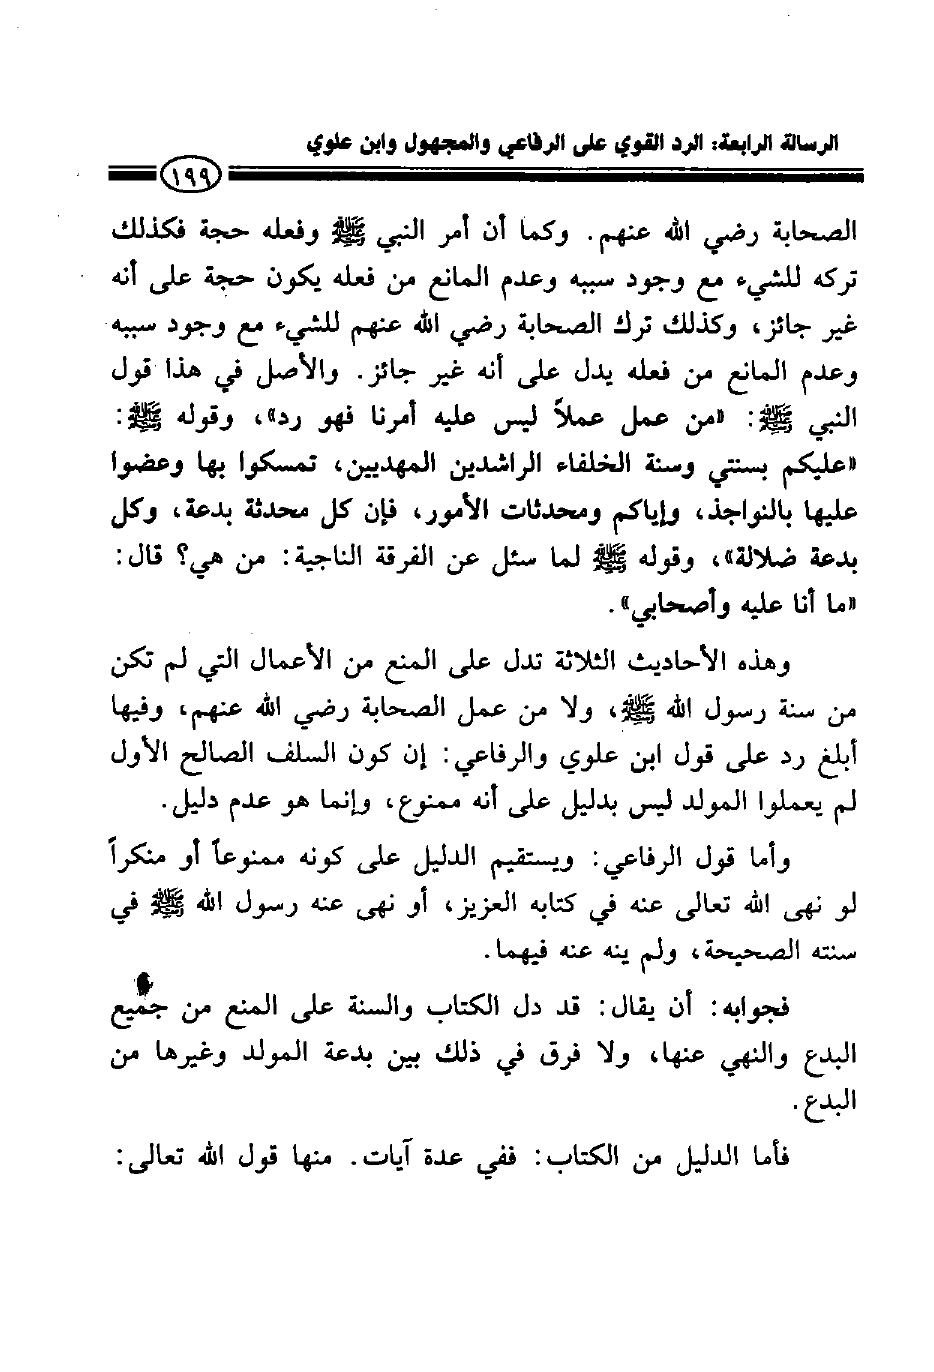 الرسالة الرابعة: الرد القوي على الرفاعي والمجهول وابن علوي
١٩٩
الصحابة رضي الله عنهم. وكما أن أمر النبي ﷺ وفعله حجة فكذلك
تركه للشيء مع وجود سببه وعدم المانع من فعله يكون حجة على أنه
غير جائز، وكذلك ترك الصحابة رضي الله عنهم للشيء مع وجود سببه
وعدم المانع من فعله يدل على أنه غير جائز. والأصل في هذا قول
النبي ﷺ: «من عمل عملاً ليس عليه أمرنا فهو رد»، وقوله ﷺ:
«عليكم بسنتي وسنة الخلفاء الراشدين المهديين، تمسكوا بها وعضوا
عليها بالنواجذ، وإياكم ومحدثات الأمور، فإن كل محدثة بدعة، وكل
بدعة ضلالة»، وقوله ﷺ لما سئل عن الفرقة الناجية: من هي؟ قال:
«ما أنا عليه وأصحابي».
وهذه الأحاديث الثلاثة تدل على المنع من الأعمال التي لم تكن
من سنة رسول الله ﷺ، ولا من عمل الصحابة رضي الله عنهم، وفيها
أبلغ رد على قول ابن علوي والرفاعي: إن كون السلف الصالح الأول
لم يعملوا المولد ليس بدليل على أنه ممنوع، وإنما هو عدم دليل.
وأما قول الرفاعي: ويستقيم الدليل على كونه ممنوعاً أو منكراً
لو نهى الله تعالى عنه في كتابه العزيز، أو نهى عنه رسول الله ﷺ في
سنته الصحيحة، ولم ينه عنه فيهما.
فجوابه: أن يقال: قد دل الكتاب والسنة على المنع من جميع
البدع والنهي عنها، ولا فرق في ذلك بين بدعة المولد وغيرها من
البدع.
فأما الدليل من الكتاب: ففي عدة آيات. منها قول الله تعالى: